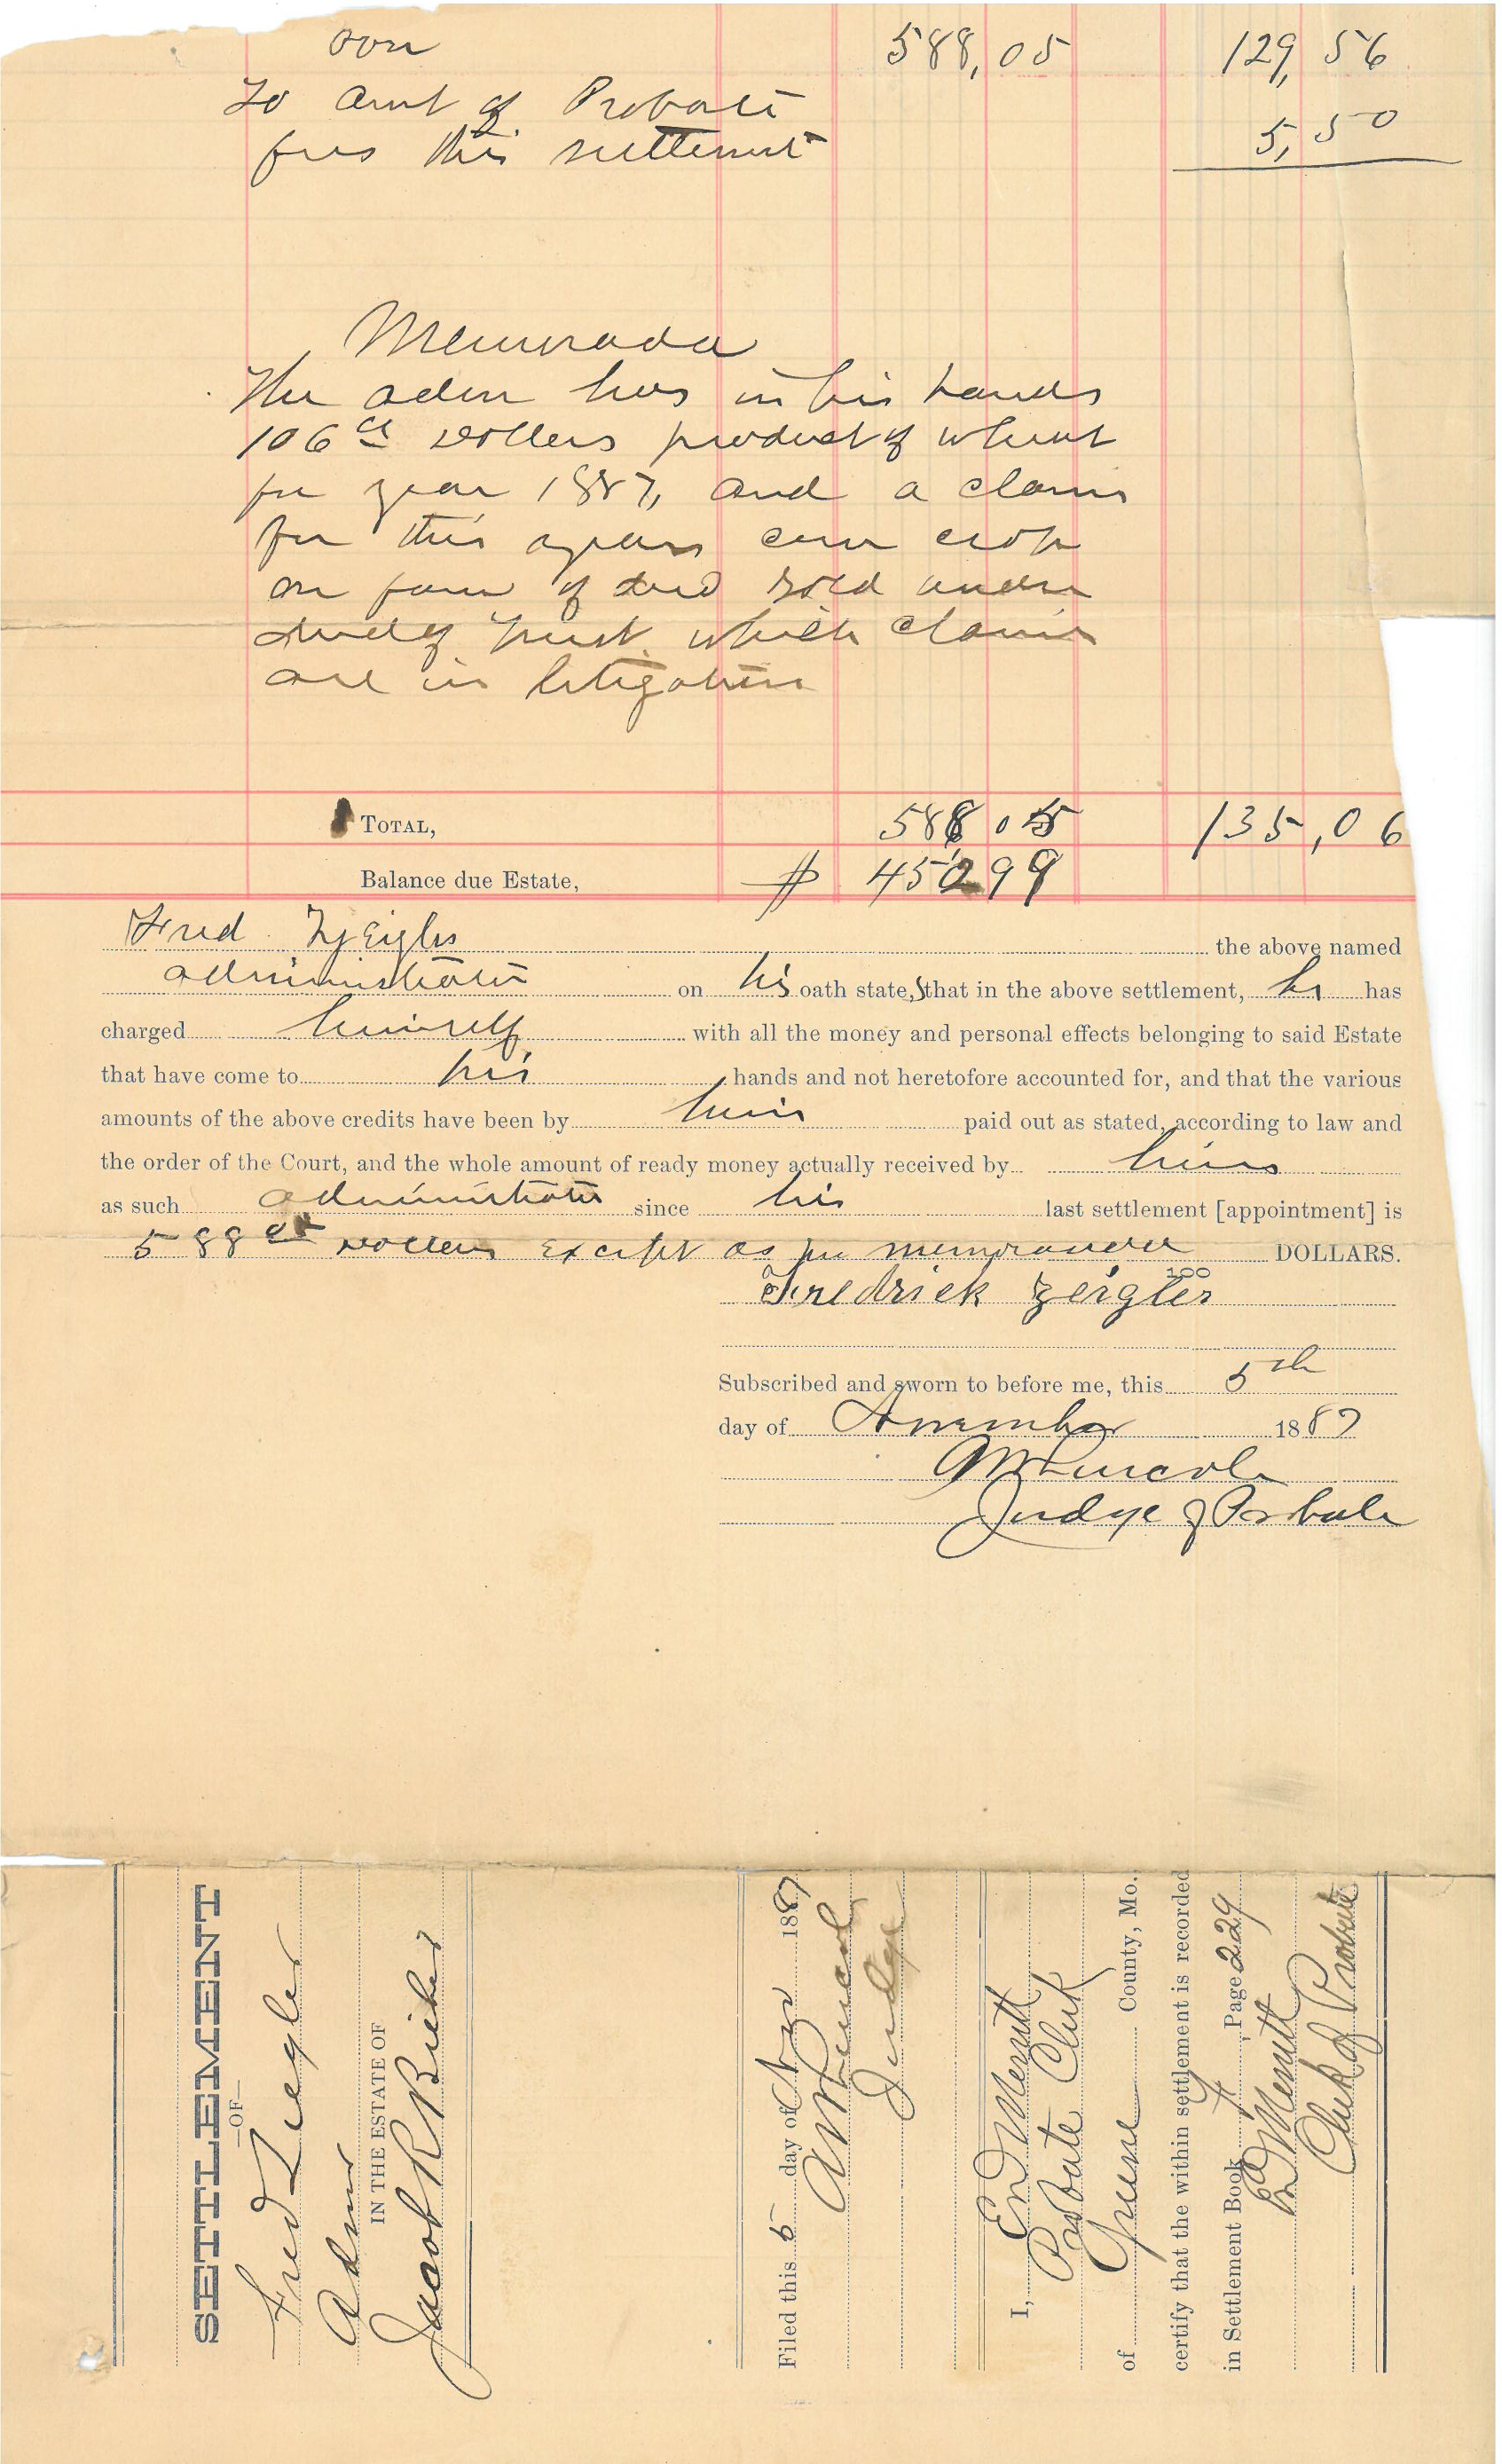 588,05 129,56
To Amt of Probate
fees this settlement 5,50
Memorada
The adm has in his hands
106 Dollars product of wheat
for year 1887, and a claim
for this years corn crop
on farm of decd sold under
deed of trust which claims
are in litigation
TOTAL, 588 05 135,06
Balance due Estate, $ 452 99
Fred Zeigler the above named
administrator on his oath states that in the above settlement, he has
charged himself with all the money and personal effects belonging to said Estate
that have come to his hands and not heretofore accounted for, and that the various
amounts of the above credits have been by him paid out as stated, according to law and
the order of the Court, and the whole amount of ready money actually received by him
as such administrator since his last settlement [appointment] is
588 Dollars except as per memoranda DOLLARS.
100
Fredrick Zeigler
Subscribed and sworn to before me, this 5th
day of November 1887
Judge of Probate
SETTLEMENT
—OF—
Fred Ziegler
Admr
IN THE ESTATE OF
Jacob R Bieker
Filed this 5 day of Nov 1887
Judge
I, Ed Merritt
Probate Clerk
of Greene County, Mo.,
certify that the within settlement is recorded
in Settlement Book, Page 229
Ed Merritt
Clerk of Probate